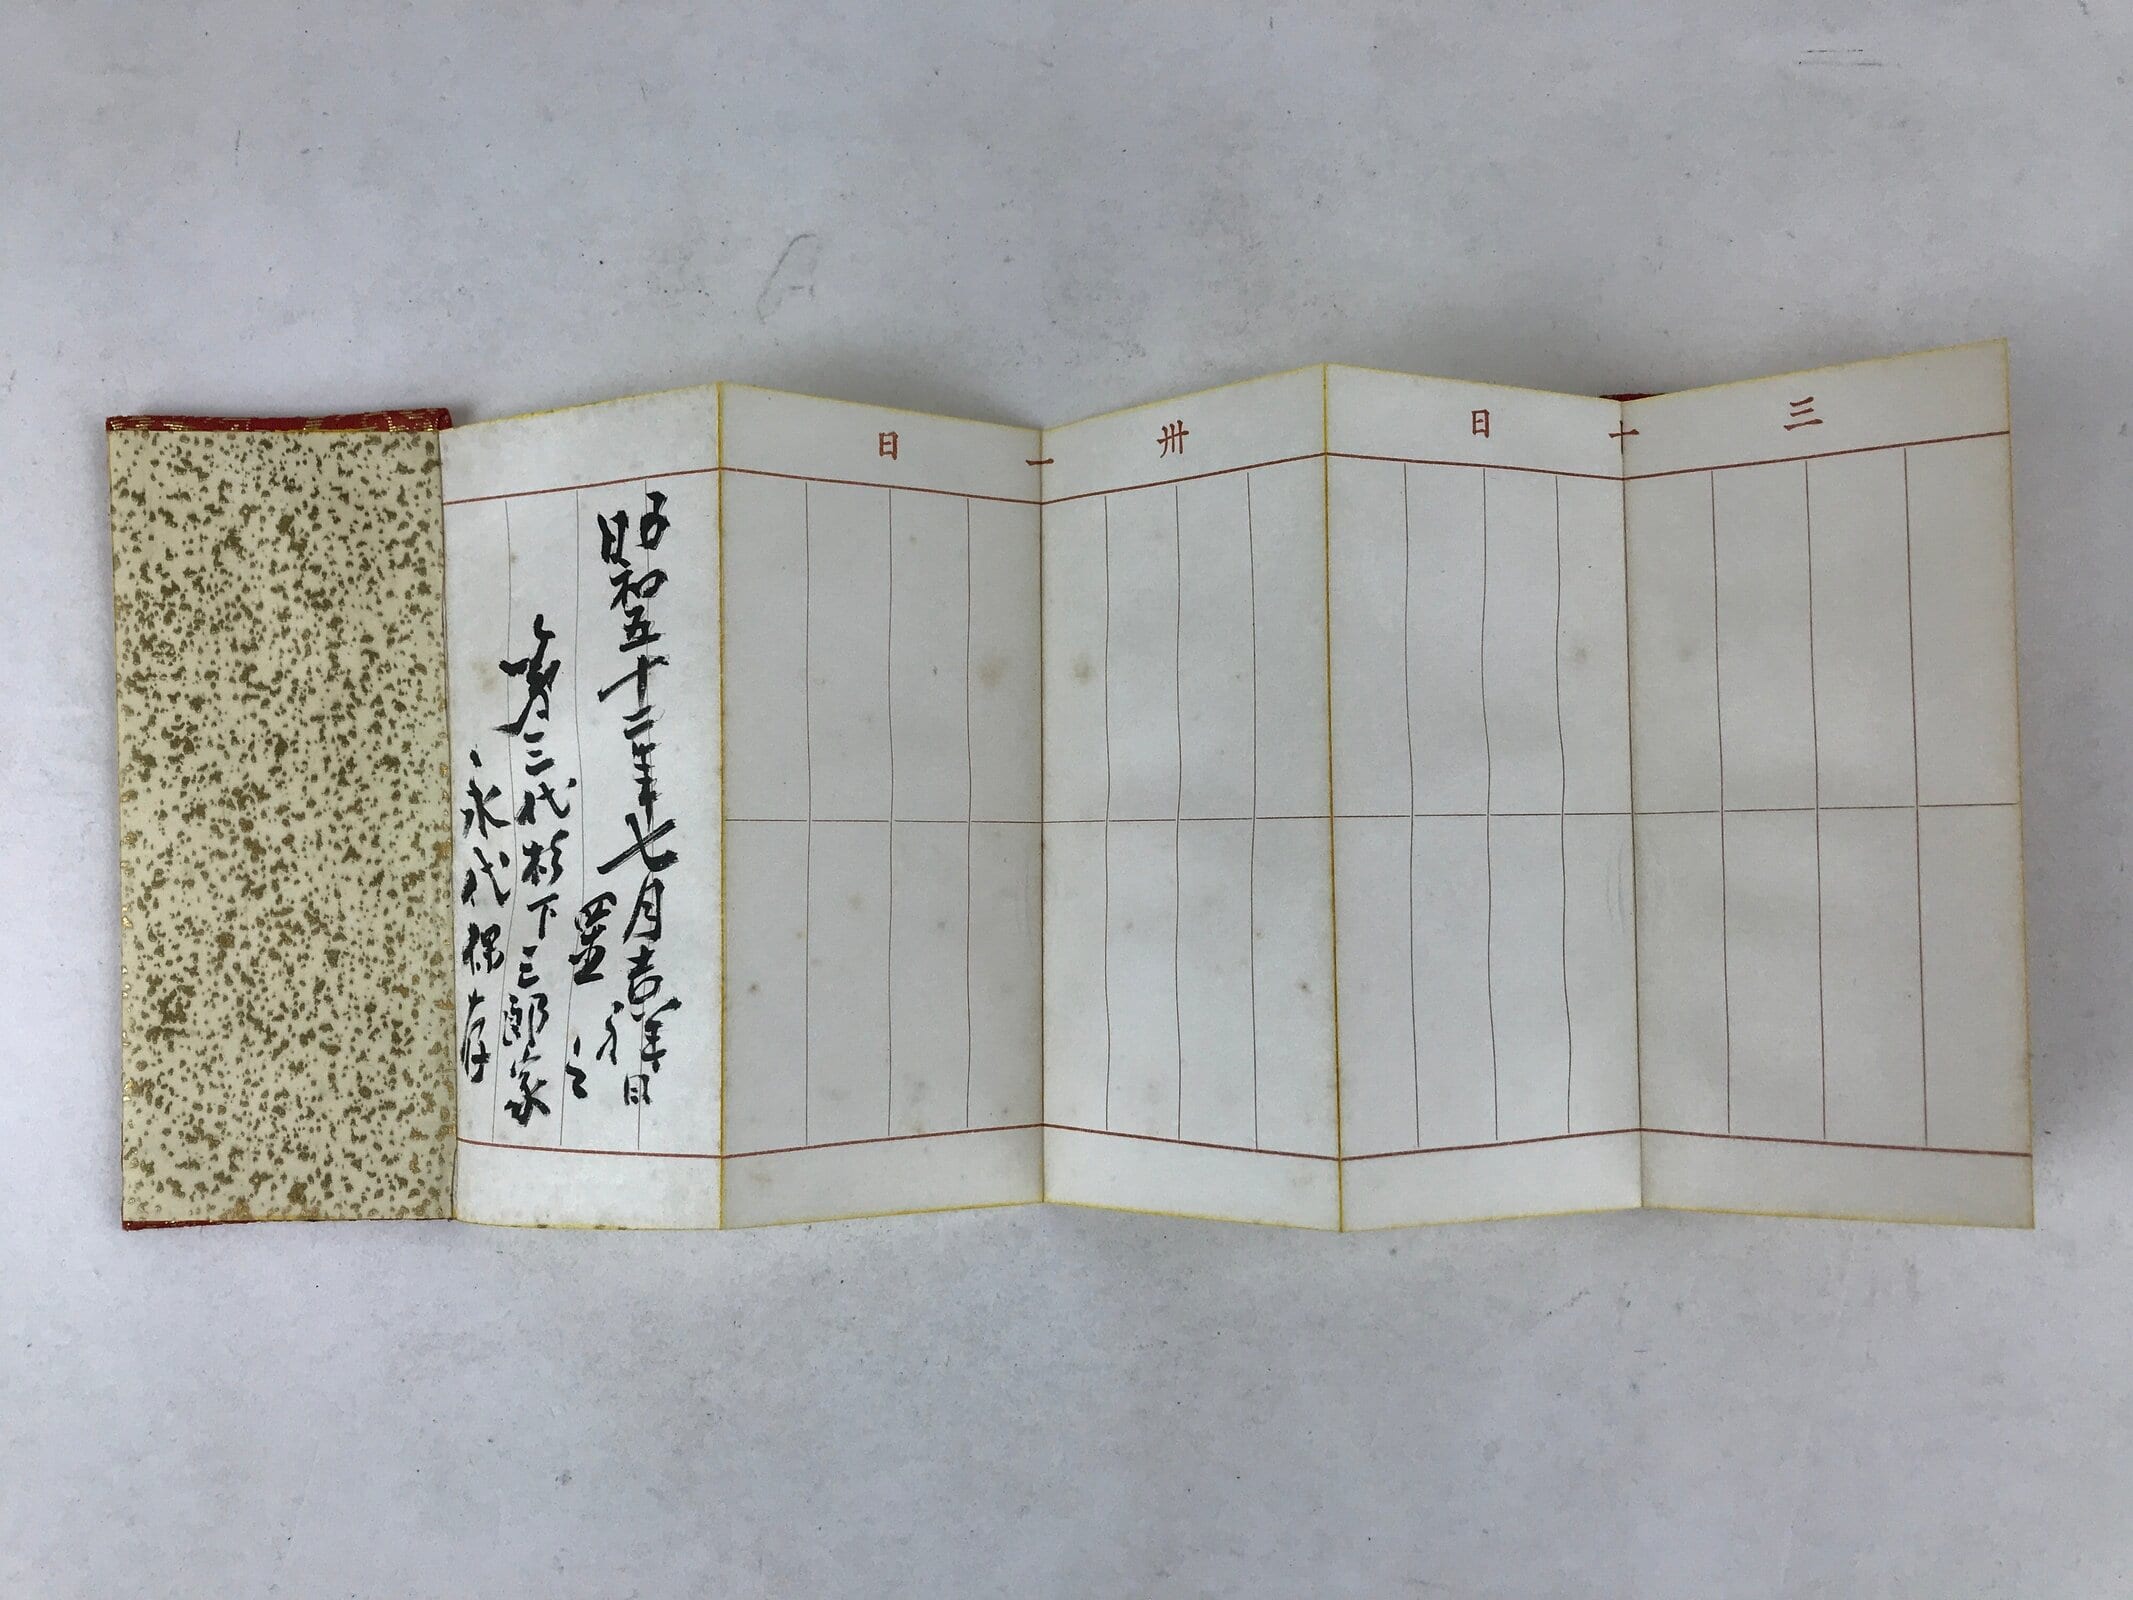 三十日
卅一日
昭和五十二年七月吉祥日
置之
第三代杉下三郎家
永代保存